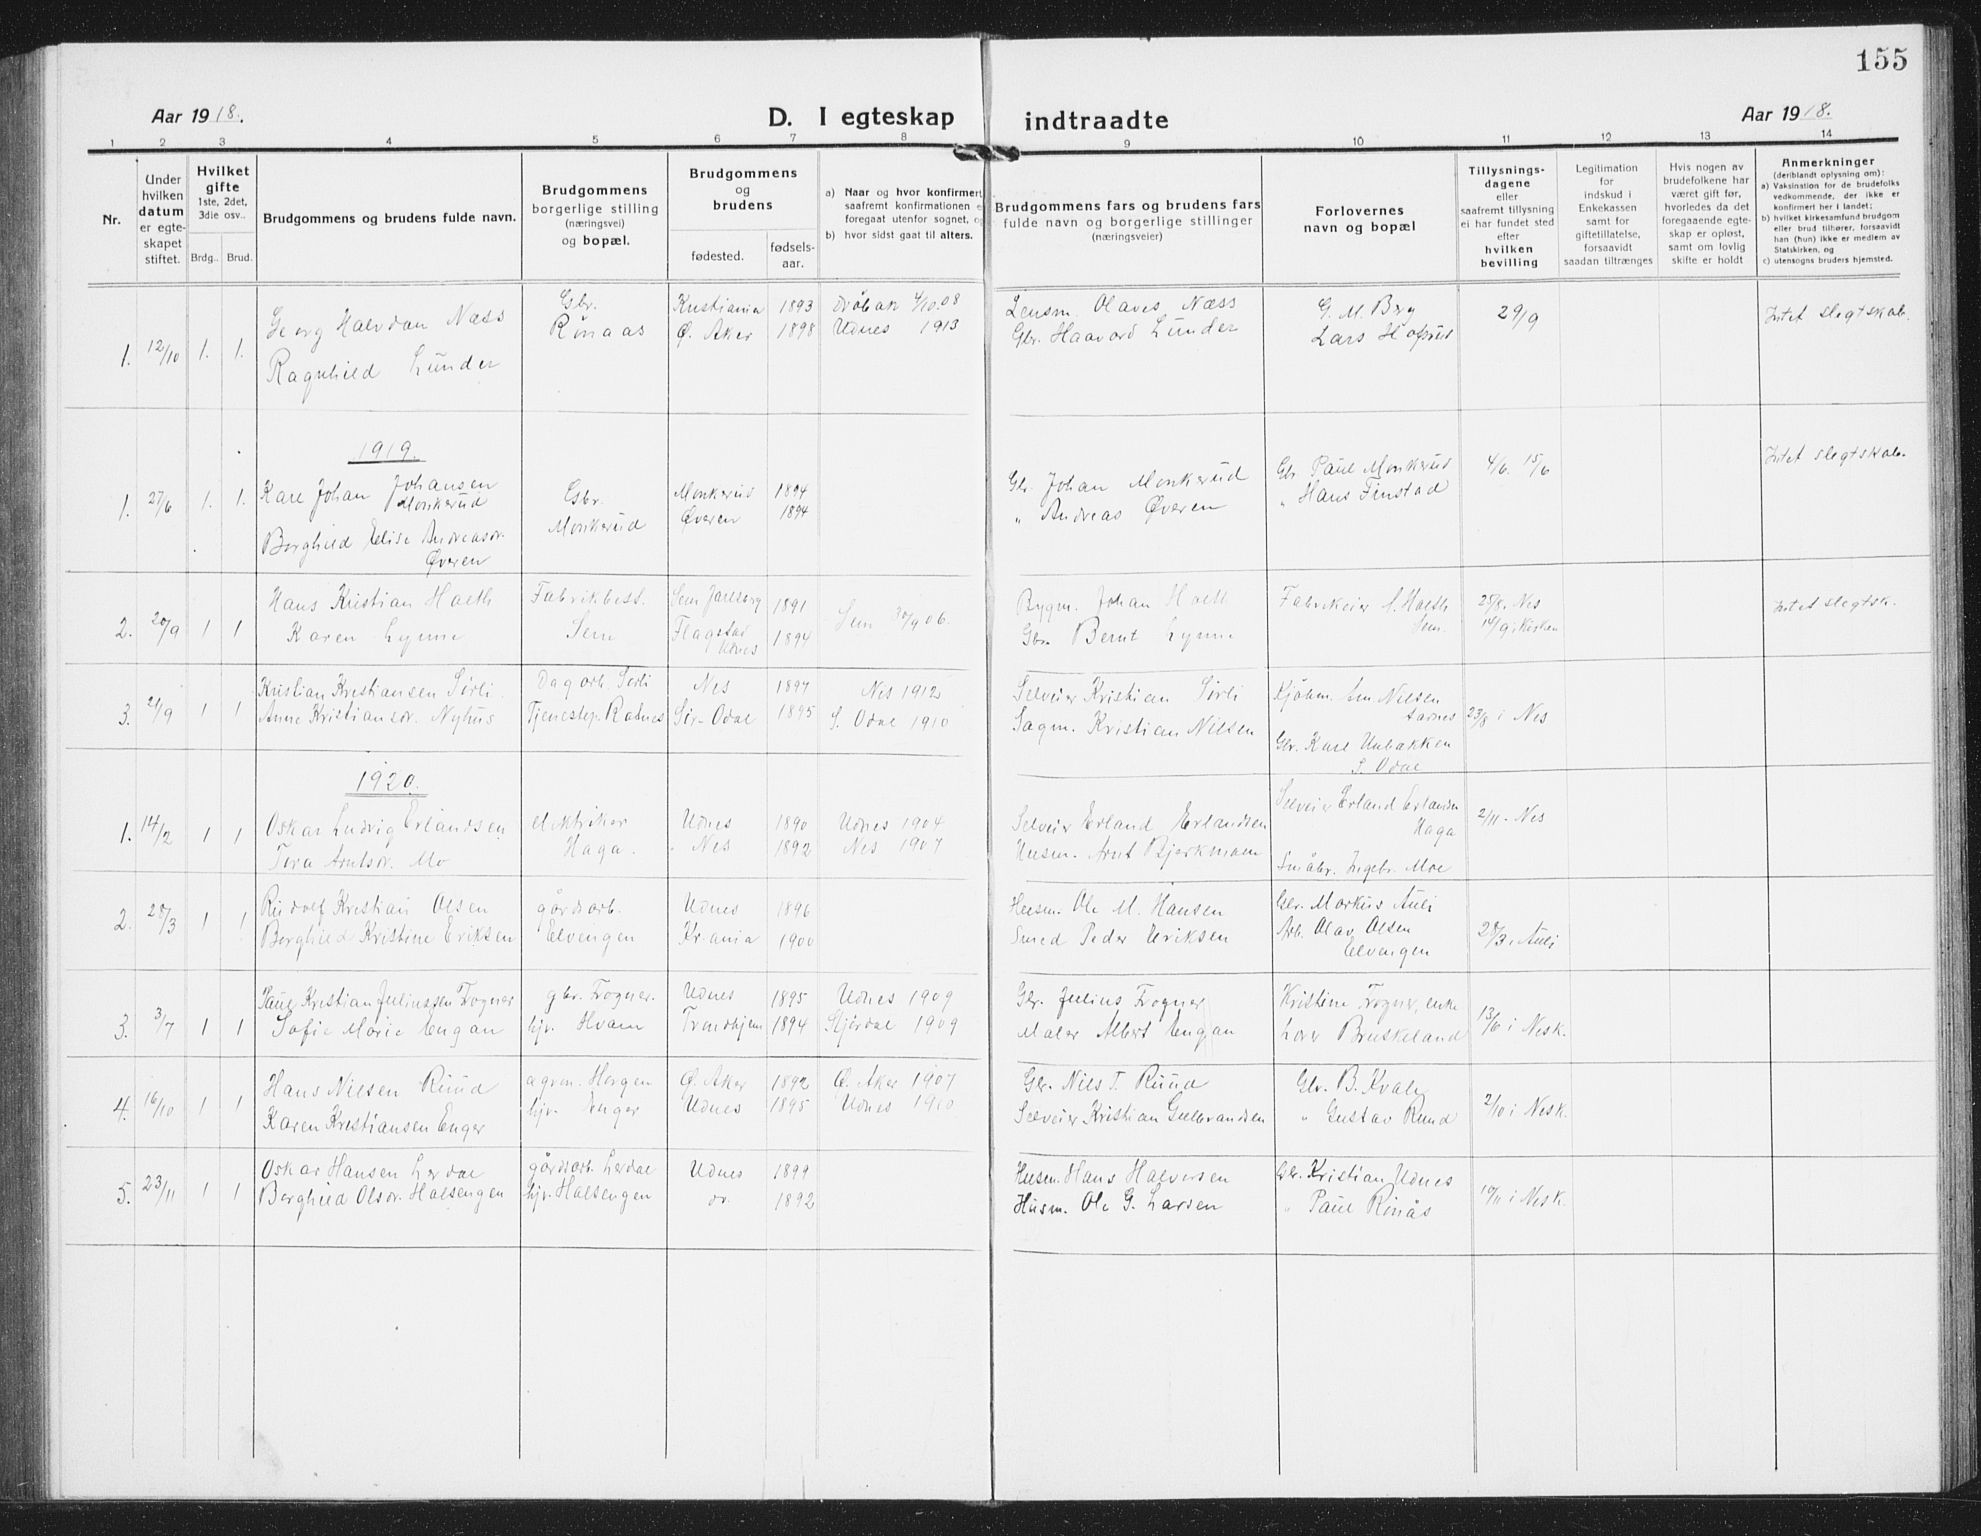 155
Aar 1918.
D. I egteskap indtraadte
Aar 1918.
1 2 3 4 5 6 7 8 9 10 11 12 13 14
Nr.
Under hvilken datum er egteskapet stiftet.
Hvilket gifte 1ste, 2det, 3die osv..
Brdg.. Brud.
Brudgommens og brudens fulde navn.
Brudgommens borgerlige stilling (næringsvei) og bopæl.
Brudgommens og brudens
fødested. fødsels-aar.
a) Naar og hvor konfirmert, saafremt konfirmationen foregaat utenfor sognet,
b) hvor sidst gaat til alters.
Brudgommens fars og brudens fars fulde navn og borgerlige stillinger (næringsveier)
Forlovernes navn og bopæl
Tillysnings-dagene eller saafremt tillysning ei har fundet sted efter hvilken bevilling
Legitimation for indskud i Enkekassen samt for giftetillatelse, forsaavidt saadan tiltrænges
Hvis nogen av brudefolkene har været gift før, hvorledes da det foregaaende egteskap er opløst, samt om lovlig skifte er holdt
Anmerkninger (deriblandt oplysning om):
a) Vaksination for de brudefolks vedkommende, der ikke er konfirmert her i landet;
b) hvilket kirkesamfund brudgom eller brud tilhører, forsaavidt han (hun) ikke er medlem av Statskirken, og
c) utensogns bruders hjemsted.
1. 12/10 1. 1. Georg Halvdan Næss Gbr. Kristiania 1893 Drøbak 4/10.08 Lensm. Olaves Næss G. M. Berg 29/9 Intet slegtskab.
Ragnhild Lunder Rønaas Ø. Aker 1898 Udnes 1913 Gbr. Haavard Lunder Lars Hofsrud
1919.
1. 27/6 1. 1. Karl Johan Johansen Monkerud Gbr. Monkerud 1894 Gbr. Johan Monkerud Gbr. Paul Monkerud 4/6. 15/6 Intet slegtskab.
Borghild Elise Andreasdr. Øveren Monkerud Øveren 1894 " Andreas Øveren " Hans Finstad
2. 20/9 1 1 Hans Kristian Holth Fabrikbest. Sem Jarlsberg 1891 Sem 30/9 06. Bygm. Johan Holth Fabrikeier Holth Sem. 25/8. Nes Intet slegtsk.
Karen Lynne Sem Flagstad Udnes 1894 Gbr. Bernt Lynne 14/9 i Kirken
3. 21/9 1 1 Kristian Kristiansen Sørli Dagarb. Sørli Nes 1897 Nes 1912 Selveier Kristian Sørli Kjøbm. Nielsen Aarnes 23/8 i Nes
Anne Kristiansdr. Nyhus Tjenestep. Raanes Sør-Odal 1895 S. Odal 1910 Sagm. Kristian Nilsen Gbr. Karl Unbakken S. Odal
1920.
1. 14/2 1 1 Oskar Ludvig Erlandsen elektriker Udnes 1890 Udnes 1904 Selveier Erland Erlandsen Selveier Erland Erlandsen Haga 2/11 - Nes
Tora Arntsdr. Mo Haga. Nes 1892 Nes 1907 Husm. Arnt Bjerkmoen Småbr. Ingebr. Moe
2. 28/3 1 1 Rudolf Kristian Olsen gårdsarb. Udnes 1896 Husm. Ole M. Hansen Gbr. Markus Auli 28/3. Auli
Borghild Kristine Eriksen Elvengen Kr.ania 1900 Smed Peder Eriksen Arb. Olav Olsen Elvengen
3. 3/7 1 1 Paul Kristian Juliussen Frogner gbr. Frogner. Udnes 1895 Udnes 1909 Gbr. Julius Frogner Kristine Frogner, enke 13/6 i Nesk.
Sofie Marie Engan hjv. Hvam Trondhjem 1894 Stjørdal 1909 Maler Albert Engan Bruskeland
4. 16/10 1 1 Hans Nielsen Ruud agron. Horgen Ø. Aker 1892 Ø. Aker 1907 Gbr. Nils T. Ruud Gbr. B. Kvale 2/10 i Nesk.
Karen Kristiansen Enger hjv. Enger Udnes 1895 Udnes 1910 Selveier Kristian Gulbrandsen " Gustav Ruud
5. 23/11 1 1 Oskar Hansen Lerdal gårdsarb. Lerdal Udnes 1899 Husm. Hans Halvorsen Gbr. Kristian Udnes 10/11 i Nesk.
Borghild Olsdr. Halsengen hjv. Halsengen do. 1892 Husm. Ole G. Larsen " Paul Rønås